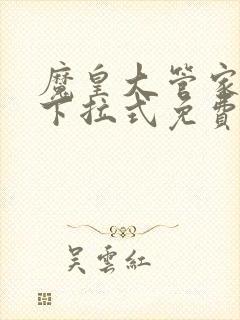 魔皇大管家
下拉式免費
吴雲紅